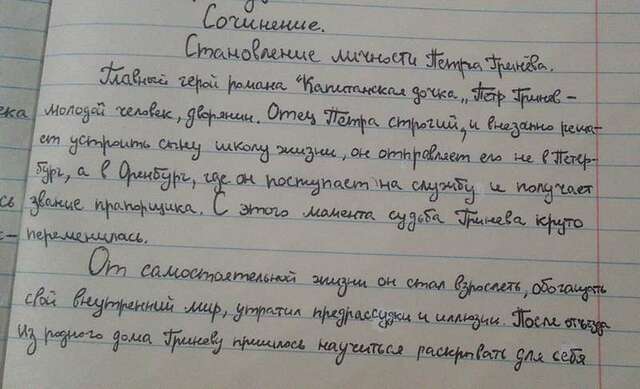 Сочинение.
Становление личности Петра Гринёва.
Главный герой романа "Капитанская дочка„ Пётр Гринов -
молодой человек, дворянин. Отец Петра строгий, и внезапно реша-
ет устроить сыну школу жизни, он отправляет его не в Петер-
бург, а в Оренбург, где он поступает на службу и получает
сь звание прапорщика. С этого момента судьба Гринева круто
с- переменилась.
От самостоятельной жизни он стал взрослеть, обогащать
свой внутренний мир, утратил предрассудки и иллюзии. После отъезда
из родного дома Гриневу пришлось научиться раскрывать для себя